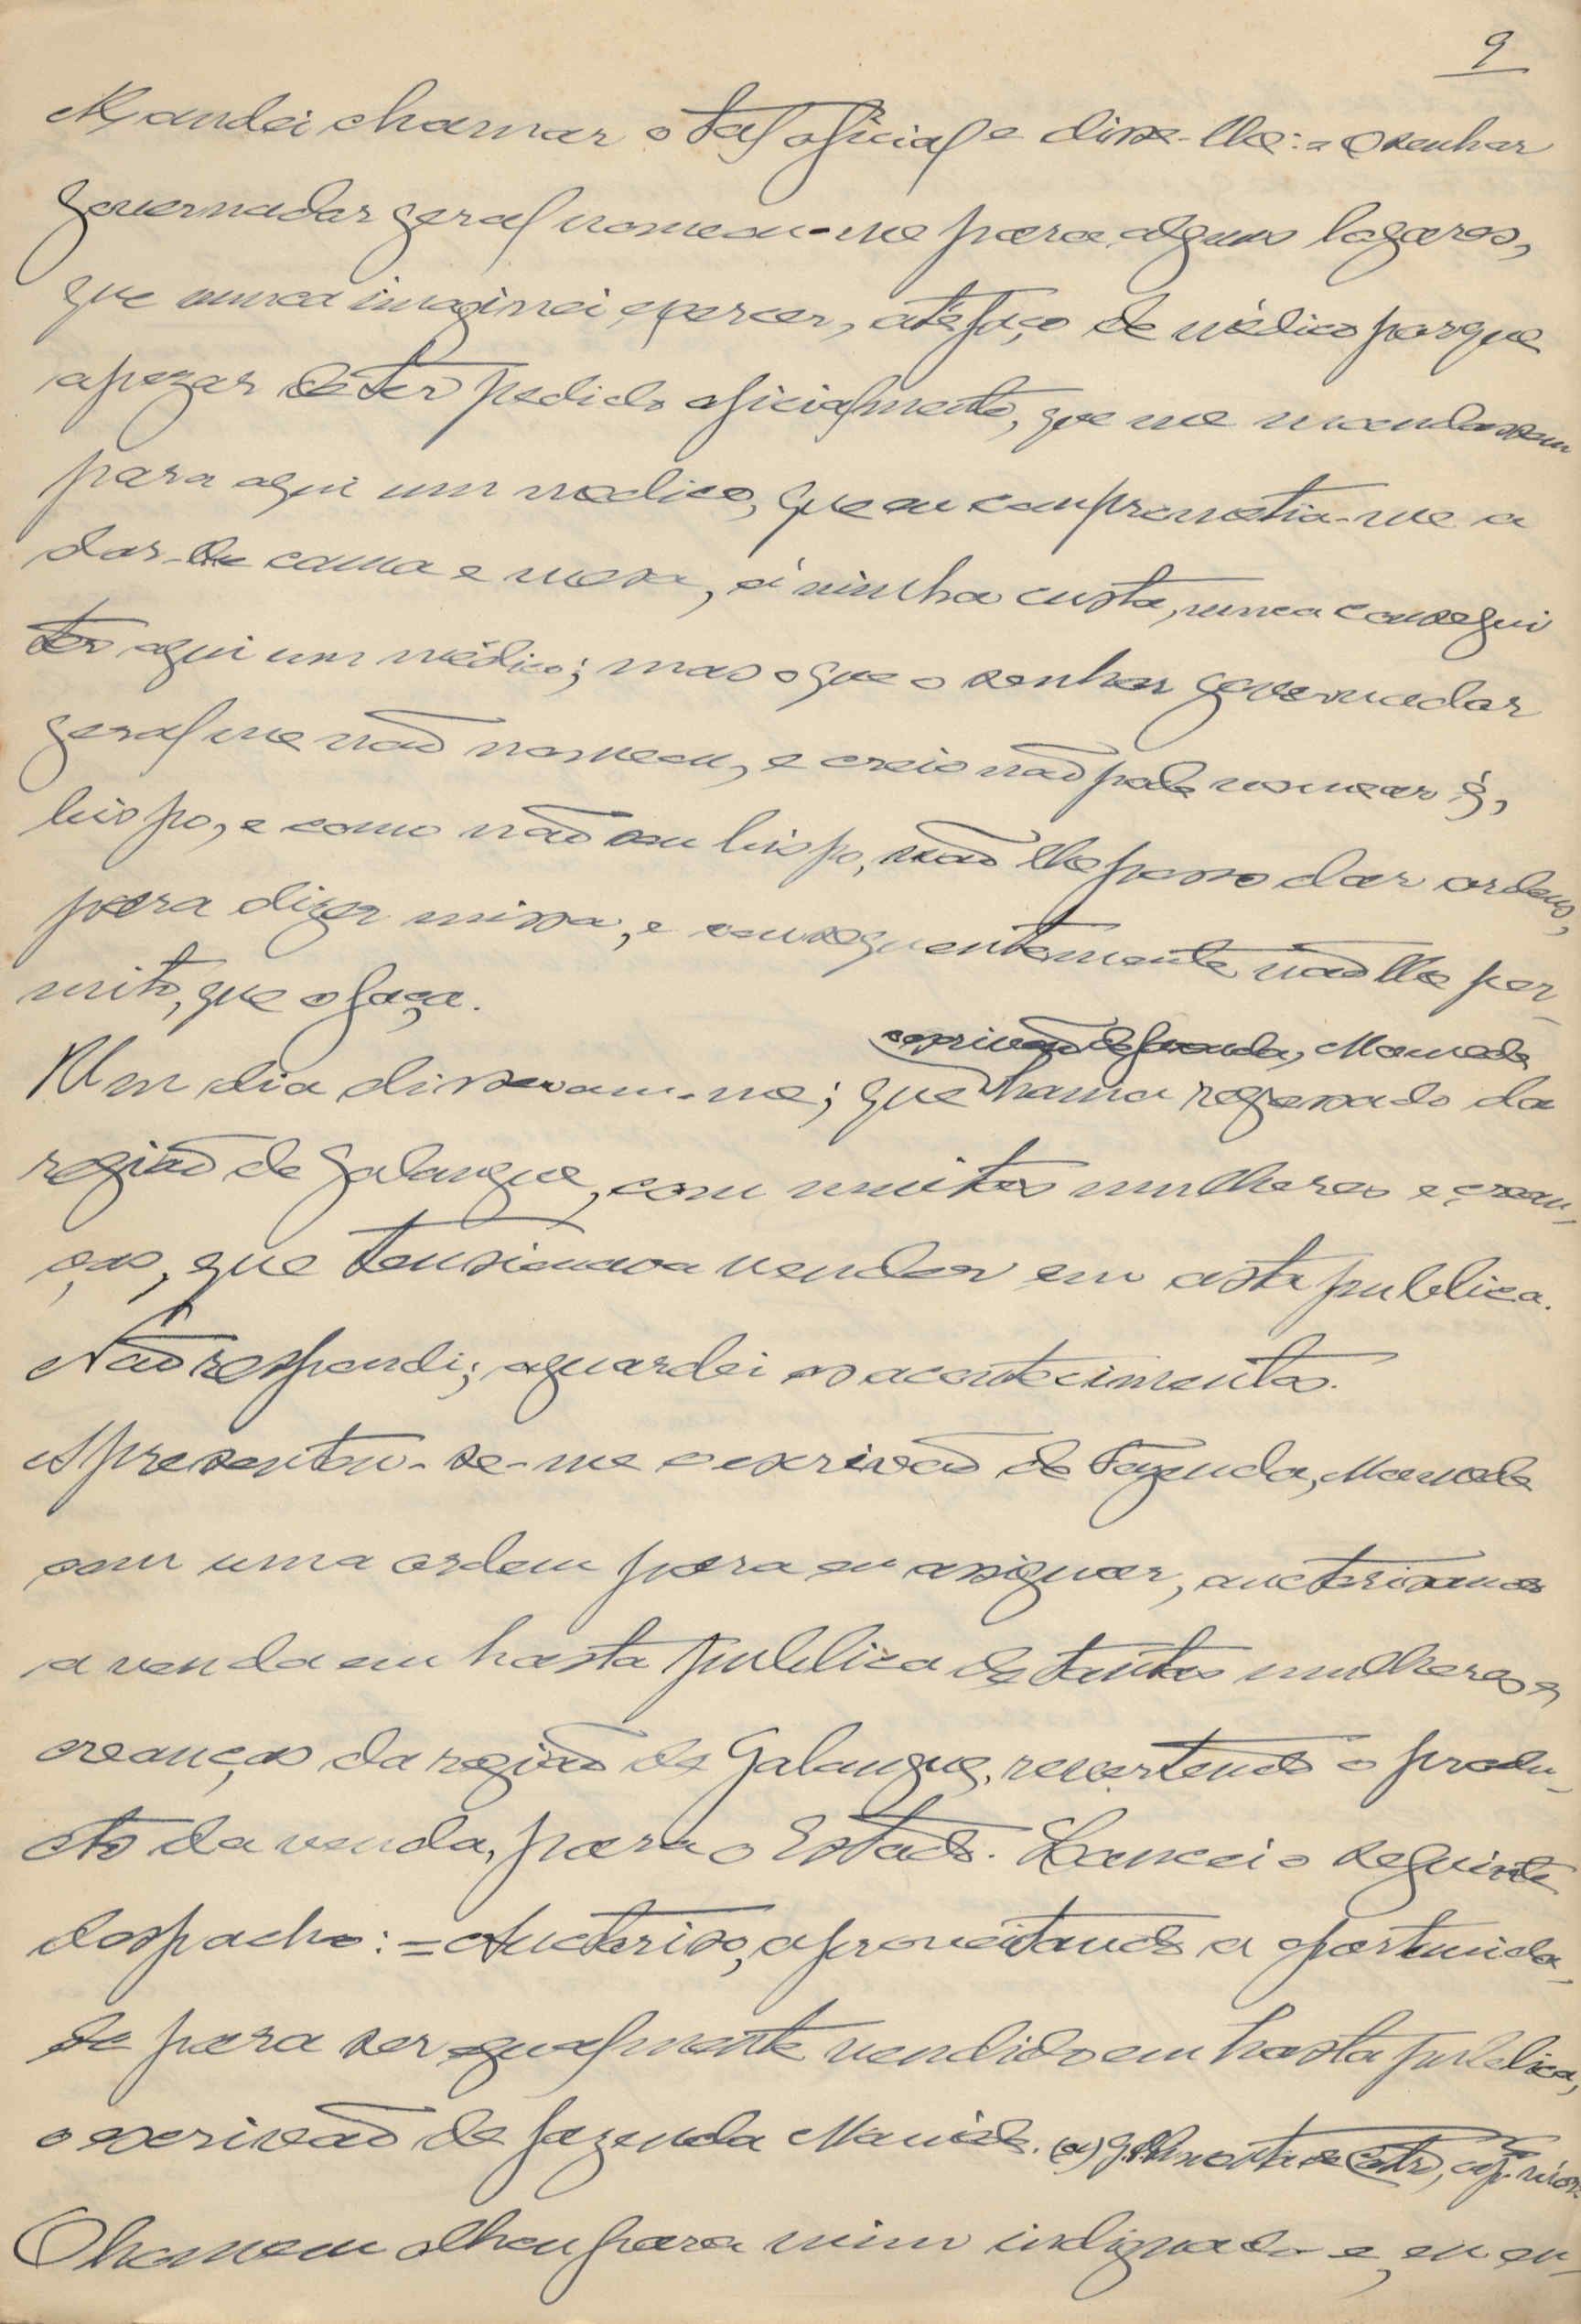 9
Mandei chamar o tal oficial e disse-lhe:= O senhor
governador geral nomeou-me para alguns logares,
que nunca imaginei exercer, até faço de médico porque
apezar de ter pedido oficialmente, que me mandassem
para aqui um medico, que eu comprometia-me a
dar-lhe cama e mesa, á minha custa, nunca consegui
ter aqui um médico; mas o que o senhor governador
geral me não nomeou, e creio não pode nomear é,
bispo, e como não sou bispo, não lhe posso dar ordens,
para dizer missa, e consequentemente não lhe per-
mito, que o faça.
escrivão de fazenda, Mamede
Um dia disseram-me; que havia regressado da
região de Galangue, com muitas mulheres e crean-
ças, que tensionava vender em asta publica.
Não respondi; aguardei os acontecimentos.
Apresentou-se-me o escrivão de Fazenda, Mamede
com uma ordem para eu assignar, auctorisando
a venda em hasta publica de tantas mulheres e
creanças da região de Galangue, revertendo o produ-
cto da venda, para o Estado. Lancei o seguinte
despacho:= Auctoriso, aproveitando a oportunida-
de para ser egualmente vendido em hasta publica,
o escrivão de fazenda Mamede. (a) de Castro, cap. mór.
O homem olhou para mim indignado e, eu en-